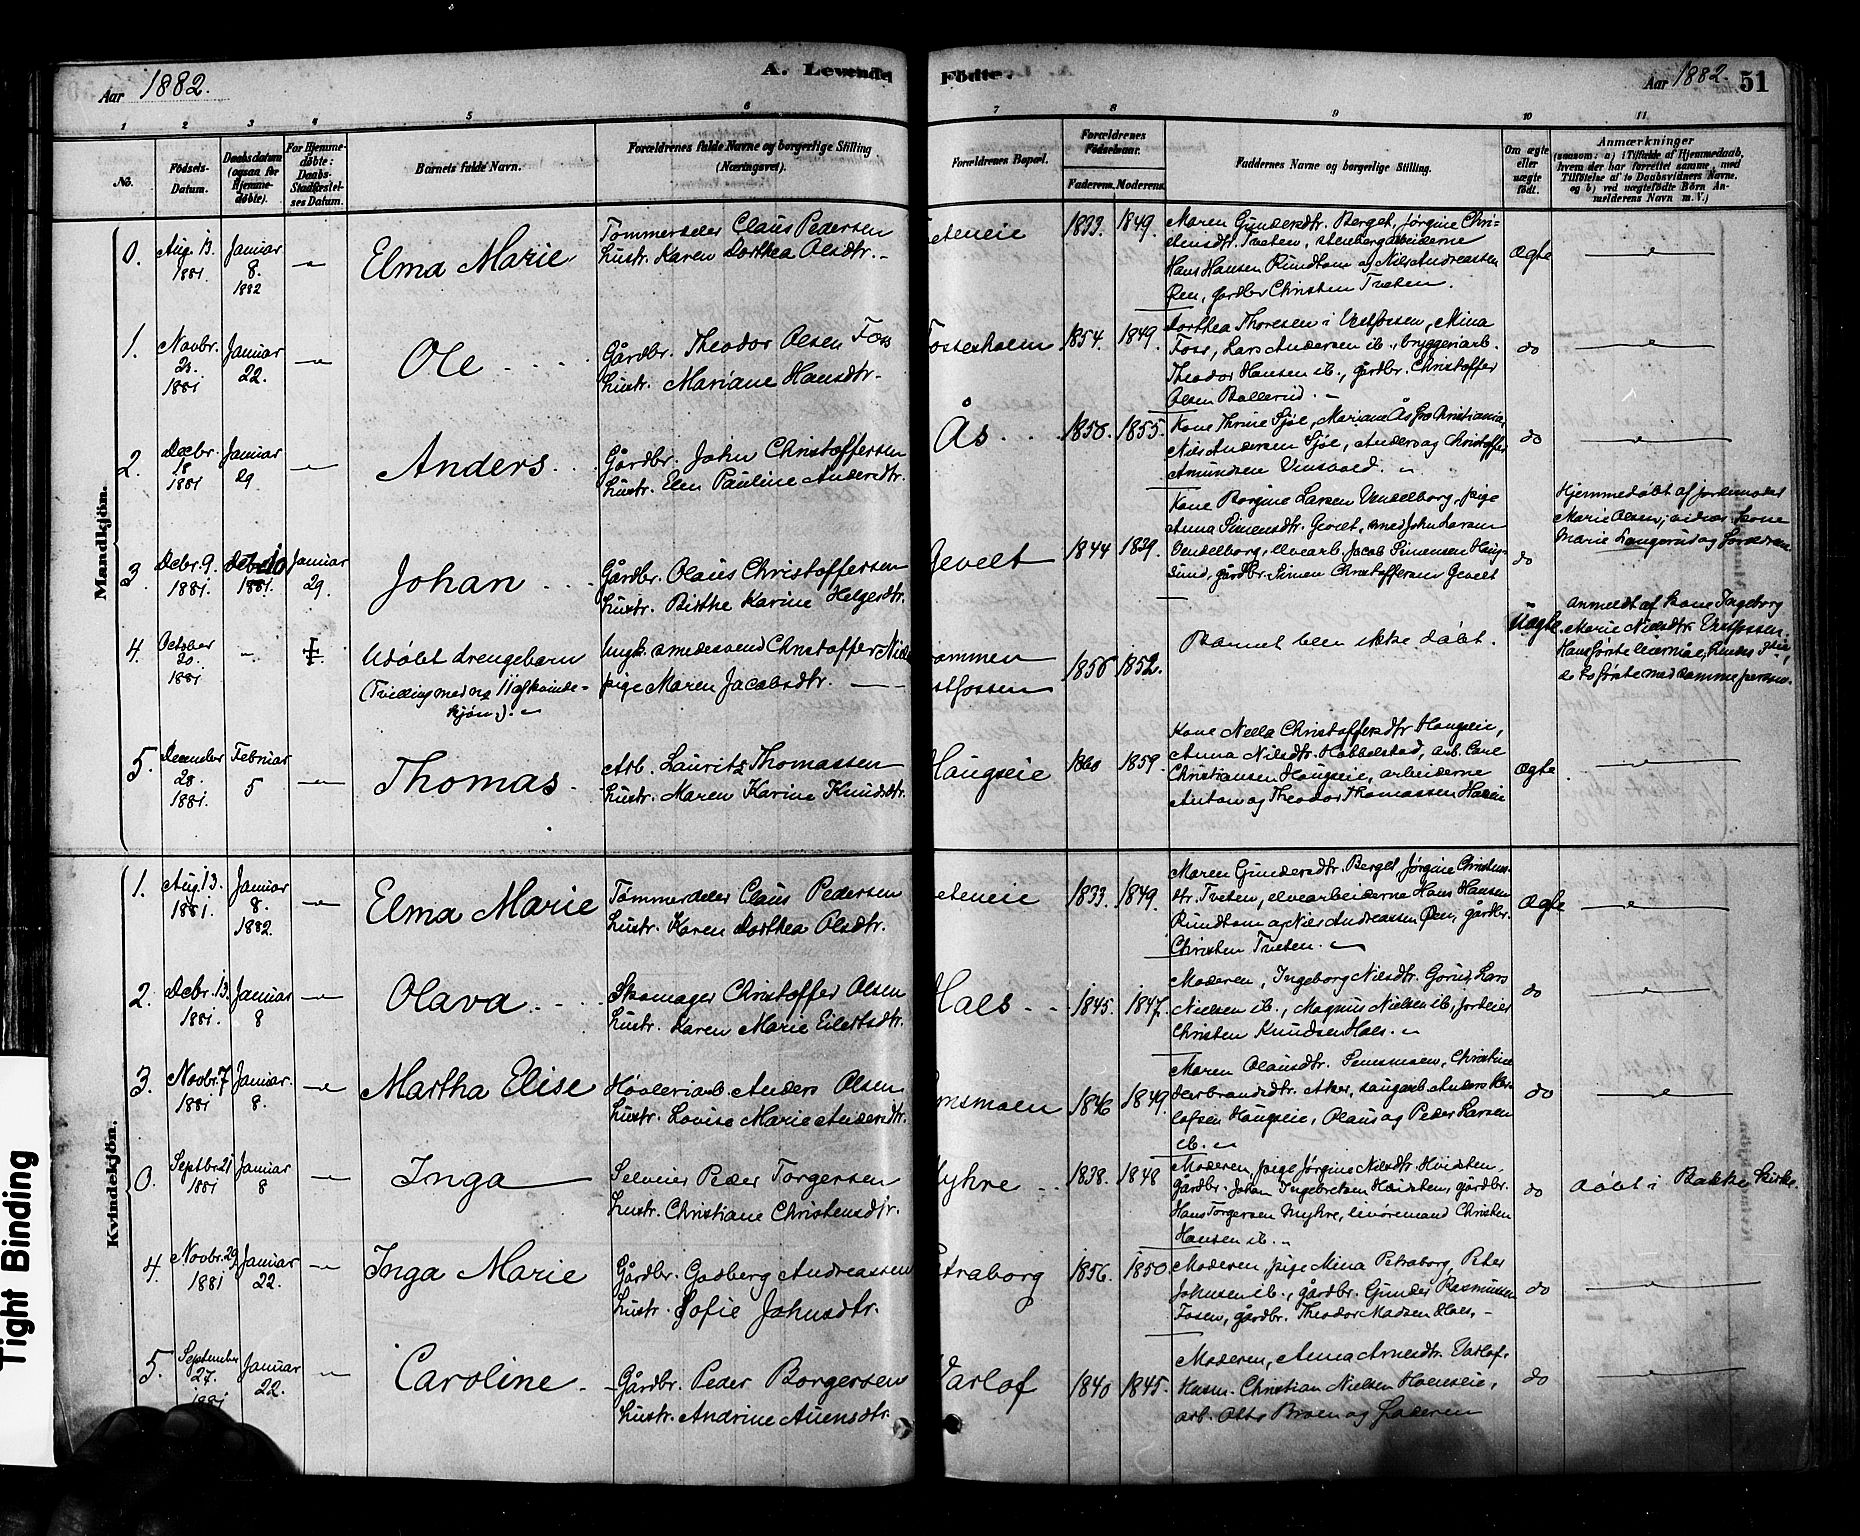 Aar 1882.
A. Levende
Fødte.
Aar 1882.
51
1 2 3 4 5 6 7 8 9 10 11
No.
Fødsels-
Datum.
Daabsdatum
(ogsaa for
Hjemme-
døbte).
For Hjemme-
døbte:
Daabs-
Stadfæstel-
ses Datum.
Barnets fulde Navn.
Forældrenes fulde Navne og borgerlige Stilling
(Næringsvei).
Forældrenes Bopæl.
Forældrenes
Fødselsaar.
Faderens. Moderens.
Faddernes Navne og borgerlige Stilling.
Om ægte
eller
uægte
født.
Anmærkninger
(saasom: a) i Tilfælde af Hjemmedaab,
hvem der har forrettet samme, med
Tilføielse af to Daabsvidners Navne,
og b) ved uægtefødte Børn An-
melderens Navn m. V.)
Mandkjøn.
0. Aug. 13. 1881. Januar 8. 1882
Elma Marie
Tømmerdeler Claus Pedersen
Hustr. Karen Dorthea Olsdtr.
eteneie 1833. 1849.
Maren Gundersdtr. Berget, Jørgine Chri-
stensdtr. Tveten,
Hans Hansen Rundtom og Niels Andreassen
Øen, gårdbr Christen Tveten.
Ægte
1. Novbr. 23. 1881 Januar 22.
Ole
Gårdbr. Theodor Olsen Foss
Hustr. Mariane Hansdtr.
Fossesholm 1854. 1849.
Dorthea Thoresen i Vestfossen, Mina
Foss, Lars Andersen ib., bryggeriarb.
Theodor Hansen ib., gårdbr. Christoffer
Olsen Bollerud.
do
2. Decbr. 18 1881 Januar 29
Anders
Gårdbr. John Christoffersen
Hustr. Elen Pauline Andersdtr.
Ås 1850. 1855.
Kone Thrine Sjøl, Mariane Ås fra Christiania
Nils Andersen Sjøl, Anders og Christoffer
Amundsen Vinsvold.
do
3. Debr. 9. 1881. Debr. 10 1881. Januar 29.
Johan
Gårdbr. Olaus Christoffersen
Hustr. Birthe Karine Helgesdtr.
Gevelt 1844 1839.
Kone Borgine Larsen Vendelborg, pige
Anna Simensdtr. Gevelt, smed John Larsen
Vendelborg, elvearb. Jacob Simensen Haug-
sund, gårdbr. Simen Christoffersen Gevelt
do
Hjemmedøbt af jordemoder
Marie Olsen; vidner Kone
Marie Langerud og forældrene
4. October 20. 1881
Udøbt drengebarn
(Tvilling med no 11 af kvinde-
kjøn).
Ungk. smedesvend Christoffer Niels
pige Maren Jacobsdtr.
ommen
stfossen
1856 1852.
Barnet blev ikke døbt.
Uægte
Anmeldt af Kone Ingeborg
Marie Nielsdtr. Vestfossen.
Hans første leiermål, hendes 3die,
de to første med samme person.
5. December 28. 1881. Februar 5
Thomas
Arb. Lauritz Thomassen
Hustr. Maren Karine Knudsdtr.
Haugseie 1860 1859.
Kone Nella Christoffersdtr Haugseie,
Anna Nilsdtr. Hobbelstad, arb. Carl
Christiansen Haugseie, arbeiderne
Anton og Theodor Thomassen
Ægte
Kvindekjøn.
1. Aug. 13. 1881. Januar 8. 1882.
Elma Marie
Tømmerdeler Claus Pedersen
Hustr. Karen Dorthea Olsdtr.
eteneie 1833. 1849.
Maren Gundersdtr. Berget, Jørgine Christens-
dtr. Tveten, elvearbeiderne Hans Hansen
Rundtom og Niels Andreassen Øen, gårdbr.
Christen Tveten.
Ægte
2. Debr. 13. 1881. Januar 8
Olava
Skomager Christoffer Olsen
Hustr. Karen Marie Eilertsdtr.
Hals 1845. 1847.
Moderen, Ingeborg Nilsdtr. Lars
Nielsen ib., Magnus Nielsen ib, jordeier
Christen Knudsen Hals.
do
3. Novbr. 7 1881 Januar 8.
Martha Elise
Høvleriarb. Anders Olsen
Hustr. Lovise Marie Andersdtr.
msmoen 1846 1849.
Maren Olausdtr. Semsmoen, Christine
Herbrandsdtr. Aker, saugarb. Anders
Haugseie, Olaus og Peder Larsen
ib.
do
0. Septbr. 21 1881 Januar 8
Inga
Selveier Peder Torgersen
Hustr. Christiane Christensdtr.
yhre 1838. 1848
Moderen, pige Jørgine Nilsdtr. Hvidsten,
Gårdbr. Johan Ingebretsen Hvidsten, gårdbr.
Hans Torgersen Myhre, livøremand Christen
Hansen ib.
do
døbt i Bakke Kirke.
4. Novbr. 29, 1881 Januar 22.
Inga Marie
Gårdbr. Godberg Andreassen
Hustr. Sofie Johnsdtr.
traborg 1856. 1850.
Moderen, pige Mina Petraborg, Peter
Johnsen ib., gårdbr. Gunder Rasmussen
Fosen, gårdbr. Theodor Madsen Hals,
do
5. September 27. 1881 Januar 22.
Caroline
Gårdbr. Peder Borgersen
Hustr. Andrine Auensdtr.
Varlof 1840 1845.
Moderen, Anna Arnesdtr. Varlof,
Husm. Christian Nielsen
arb. Otto Braen og Faderen
do
Tight Binding